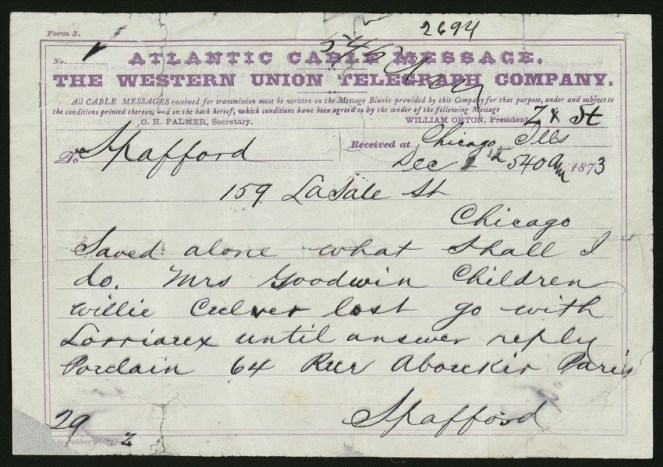 Form 2.
2694
No. 1
ATLANTIC CABLE MESSAGE.
THE WESTERN UNION TELEGRAPH COMPANY.
All CABLE MESSAGES received for transmission must be written on the Message Blanks provided by this Company for that purpose, under and subject to
the conditions printed thereon, and on the back hereof, which conditions have been agreed to by the sender of the following Message
O. H. PALMER, Secretary.
WILLIAM ORTON, President.
Z x St
Received at Chicago Ills
To Spafford
Dec 540 am 1873
159 LaSale St
Chicago
Saved alone what shall I
do. Mrs Goodwin Children
Willie Culver lost go with
Lorriaux until answer reply
Porclain 64 Rue Aboukir Paris
Spafford
29
z